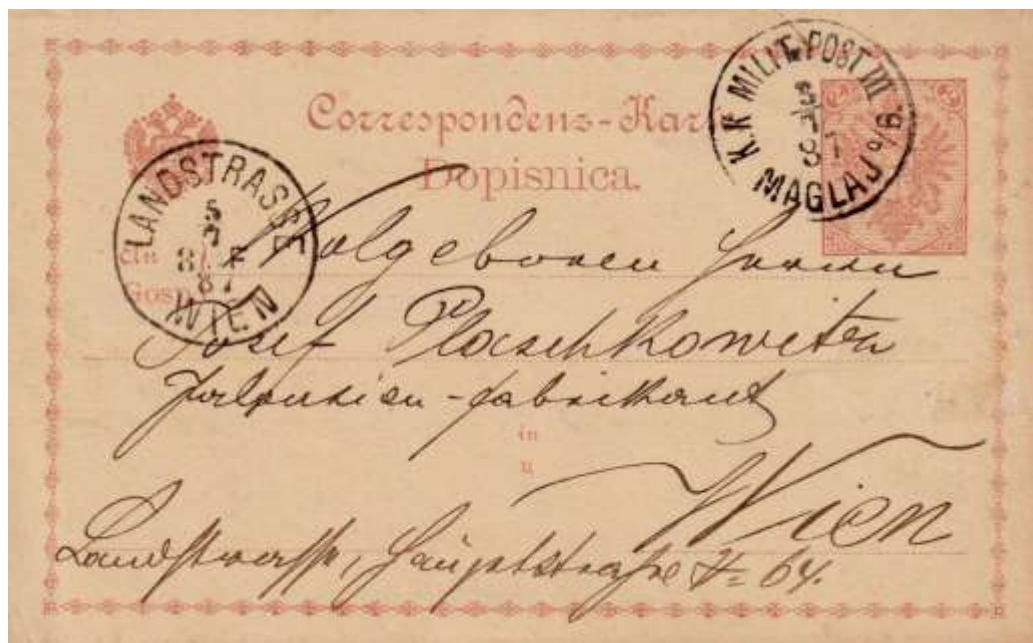 Correspondenz-Kar
Dopisnica.
K.K. MILIT. POST III.
3
7
87
MAGLAJ o/B.
LANDSTRASSE
5
7
8 F
87
WIEN
An
Gosp
Wolgeboren Herrn
Josef Plaschkowitz
Jalousien-fabrikant
in
u
Wien
Landstrasse, Hauptstraße № 64.